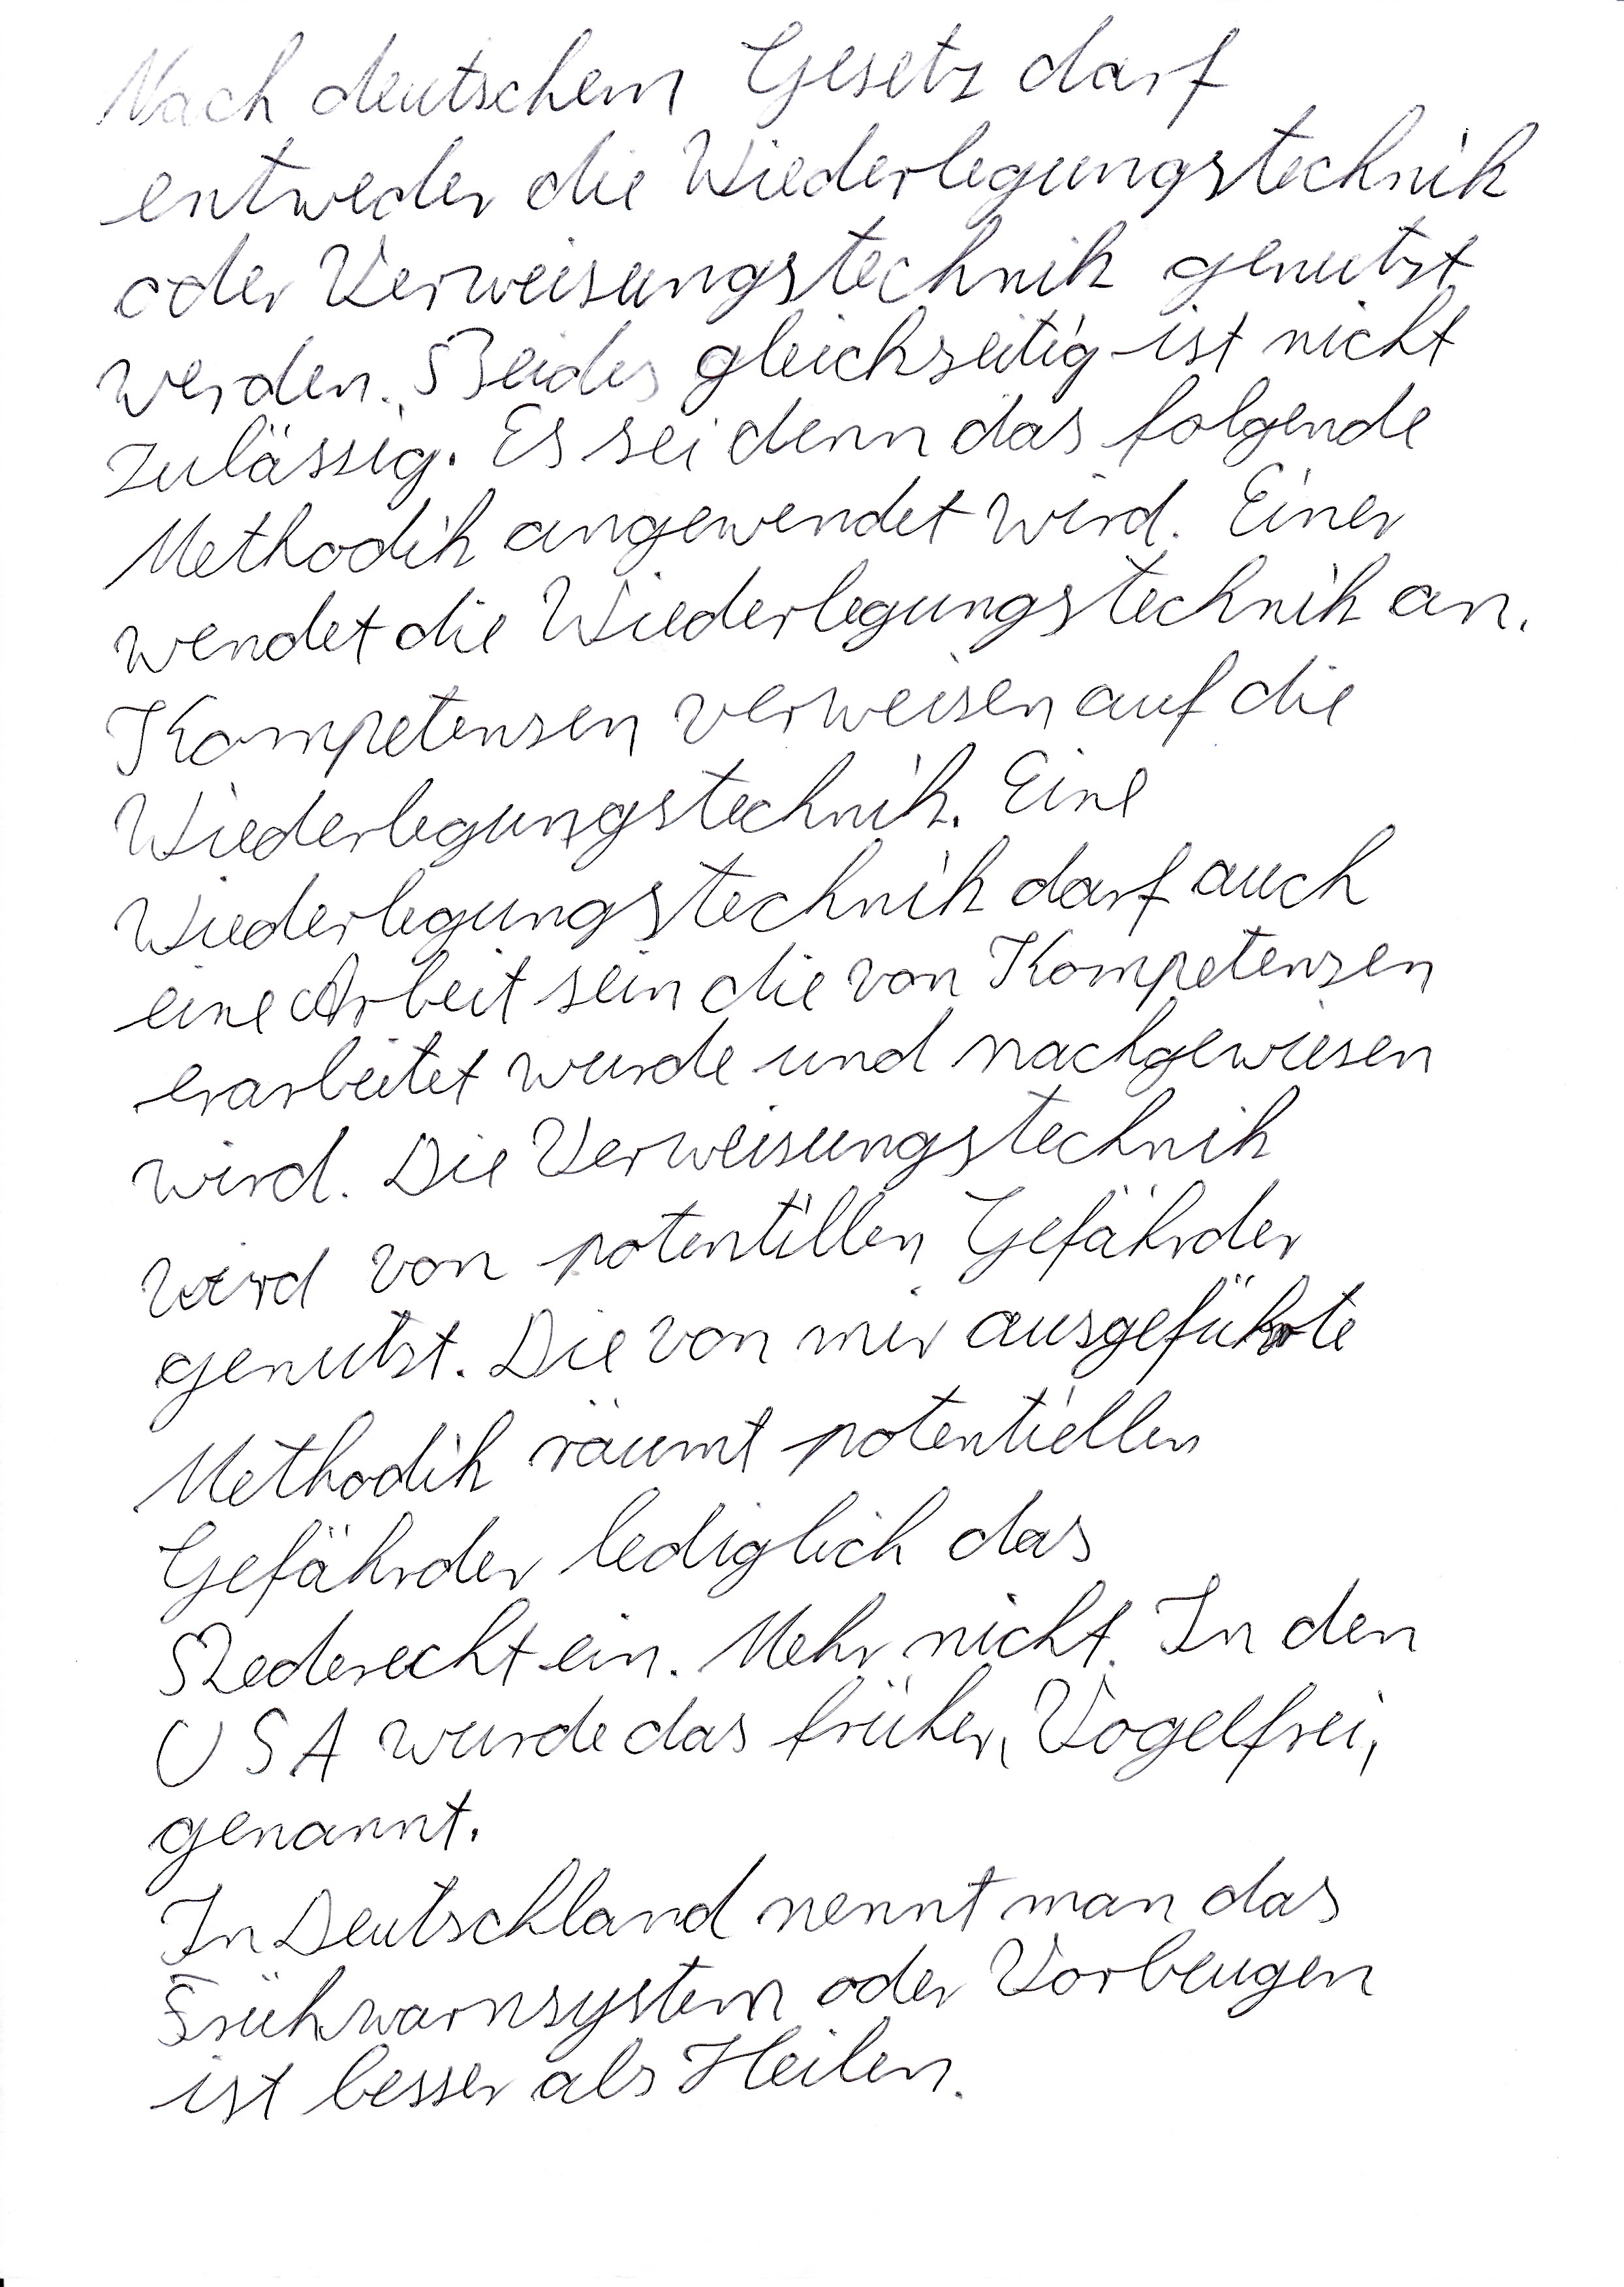 Nach deutschem Gesetz darf
entweder die Wiederlegungstechnik
oder Verweisungstechnik genutzt
werden. Beides gleichzeitig ist nicht
zulässig. Es sei denn das folgende
Methodik angewendet wird. Einer
wendet die Wiederlegungstechnik an.
Kompetenzen verweisen auf die
Wiederlegungstechnik. Eine
Wiederlegungstechnik darf auch
eine Arbeit sein die von Kompetenzen
erarbeitet wurde und nachgewiesen
wird. Die Verweisungstechnik
wird von potentillen Gefährder
genutzt. Die von mir ausgeführte
Methodik räumt potentiellen
Gefährder lediglich das
Rederecht ein. Mehr nicht. In den
USA wurde das früher, Vogelfrei,
genannt.
In Deutschland nennt man das
Frühwarnsystem oder Vorbeugen
ist besser als Heilen.